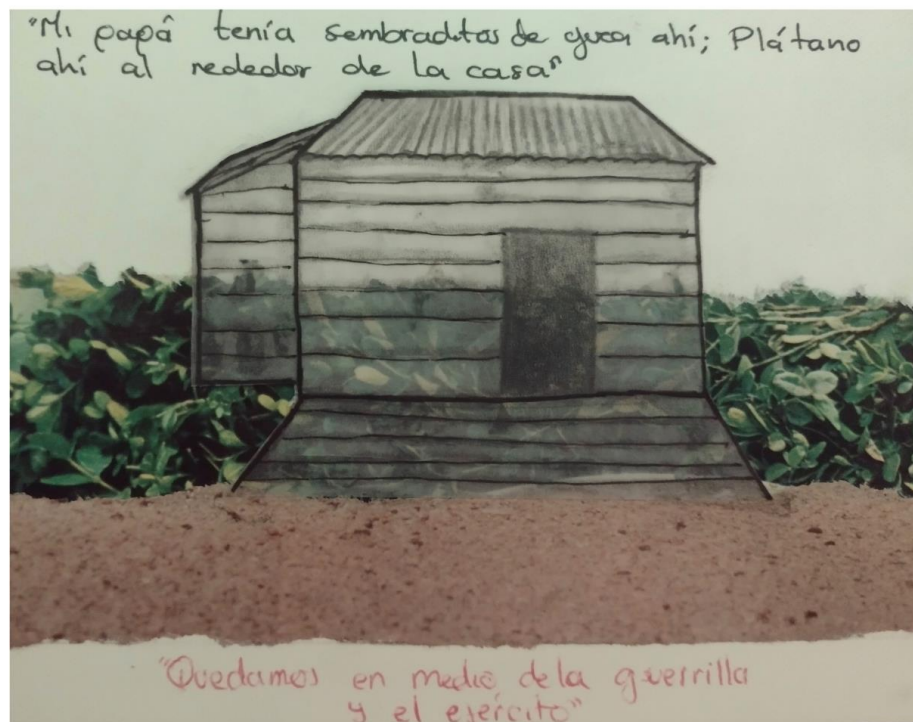 "Mi papá tenía sembraditos de yuca ahí; Plátano
ahí al rededor de la casa"
"Quedamos en medio de la guerrilla
y el ejército"